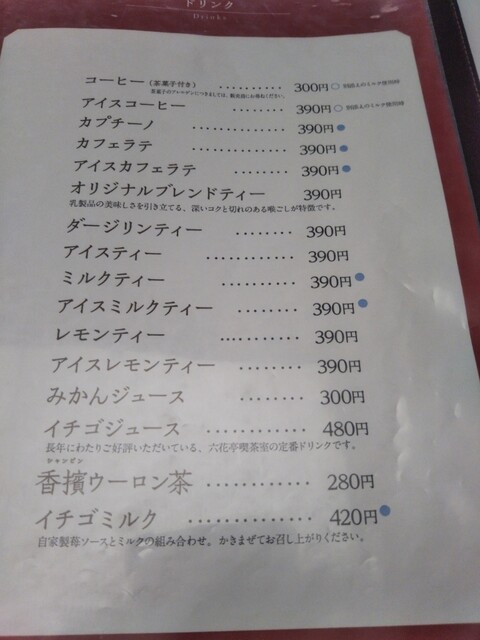 ドリンク
Drinks
コーヒー（茶菓子付き） .......... 300円○ 別添えのミルク使用時
茶菓子のアレルゲンにつきましては、販売員にお尋ねください。
アイスコーヒー .......... 390円○ 別添えのミルク使用時
カプチーノ .............. 390円●
カフェラテ .............. 390円●
アイスカフェラテ ........ 390円●
オリジナルブレンドティー 390円
乳製品の美味しさを引き立てる、深いコクと切れのある喉ごしが特徴です。
ダージリンティー ........ 390円
アイスティー ............ 390円
ミルクティー ............ 390円●
アイスミルクティー ........ 390円●
レモンティー ............ 390円
アイスレモンティー ........ 390円
みかんジュース .......... 300円
イチゴジュース .......... 480円
長年にわたりご好評いただいている、六花亭喫茶室の定番ドリンクです。
シャンピン
香擯ウーロン茶 ............ 280円
イチゴミルク .............. 420円●
自家製苺ソースとミルクの組み合わせ。かきまぜてお召し上がりください。